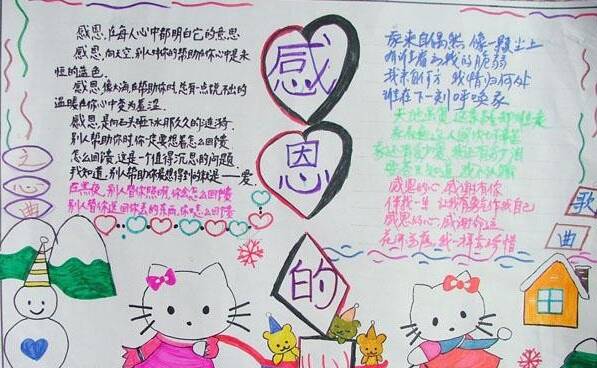 感恩,在每人心中都明白它的意思
感恩,向天空,别人对你的帮助在你心中是永
恒的蓝色.
感恩,像大海,在帮助你时,总有一点说不出的
温暖在你心中变为羞涩.
感恩,是向石头砸下水那久久的涟漪.
别人帮助你时,你一定要想着怎么回馈
怎么回馈,这是个值得沉思的问题.
我知道,别人帮助你最想得到就是——爱.
在黑夜,别人替你照明,你怎么回馈
别人替你送回你丢的东西,你怎么回馈
之
心
曲
感
恩
的
心
我来自偶然 像一颗尘土
有谁看出我的脆弱
我来自何方 我情归何处
谁在下一刻呼唤我
天地虽宽 这条路却难走
我看遍这人间坎坷辛苦
我还有多少爱 我还有多少泪
要苍天知道 我不认输
感恩的心 感谢有你
伴我一生 让我有勇气作我自己
感恩的心 感谢命运
花开花落 我一样会珍惜
歌
曲